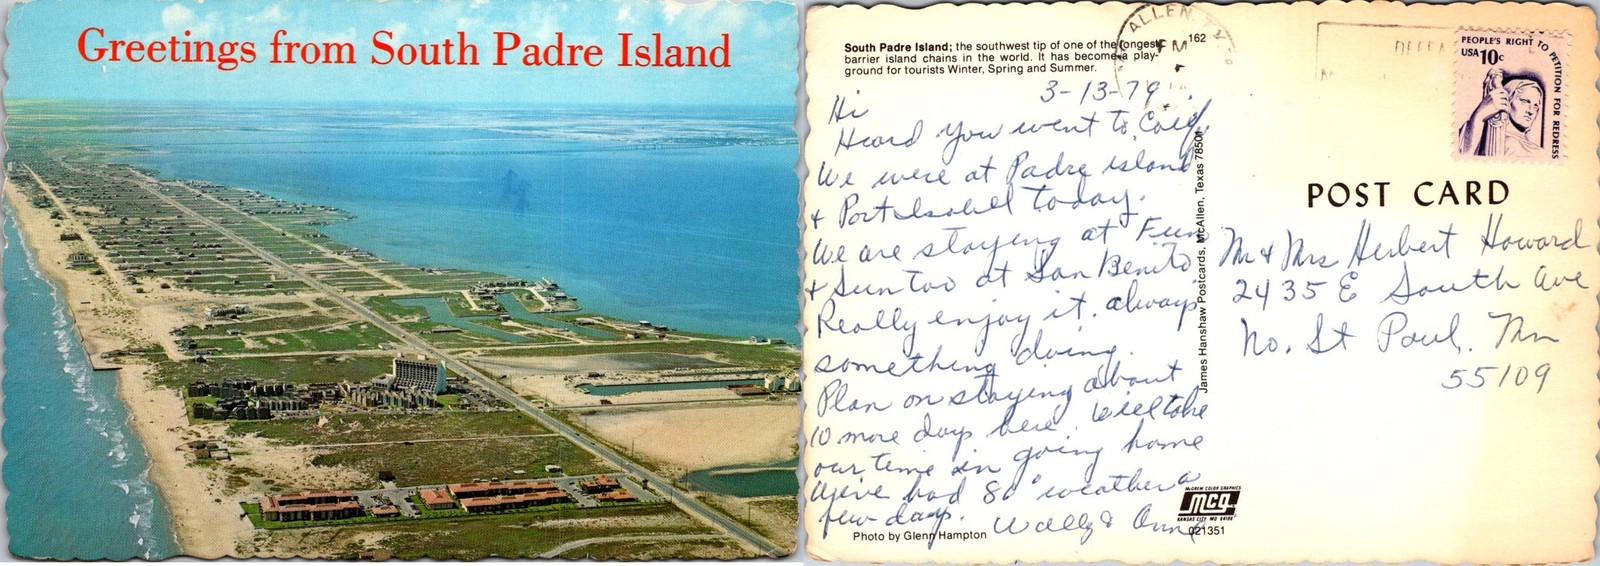 Greetings from South Padre Island
South Padre Island; the southwest tip of one of the longest
barrier island chains in the world. It has become a play-
ground for tourists Winter, Spring and Summer.
162
McALLEN, TX
PM
PEOPLE'S RIGHT TO PETITION FOR REDRESS
USA 10c
3-13-79.
Hi
Heard you went to Calif.
We were at Padre island
& Port Isabell today.
We are staying at Fun
& Sun too at San Benito
Really enjoy it. always
something doing.
Plan on staying about
10 more days here. Will take
our time in going home
We've had 80° weather a
few days. Wally & Anne
POST CARD
Mr & Mrs Herbert Howard
2435 E South Ave
No. St Paul. Mn
55109
James Hanshaw Postcards, McAllen, Texas 78501
McGREW COLOR GRAPHICS
mcg
KANSAS CITY, MO 64108
021351
Photo by Glenn Hampton